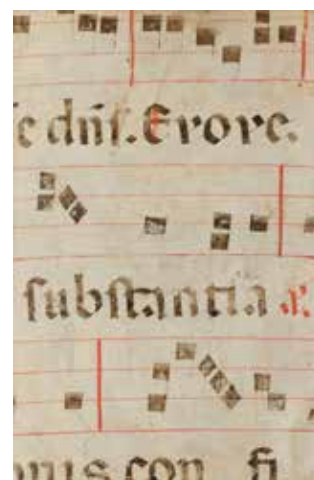 ſe dñſ. Evove.
ſubſtantia ℣.
nus con fi